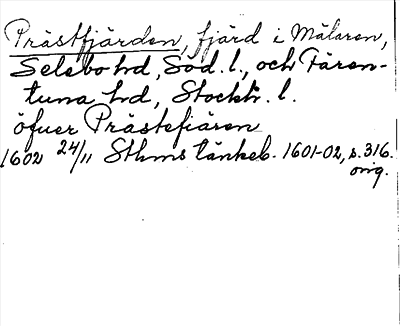 Prästfjärden, fjärd i Mälaren,
Selebo hd, Söd. l., och Fären-
tuna hd, Stockh. l.
öfuer Prästefiären
1602 24/11 Sthms tänkeb. 1601-02, s. 316.
orig.